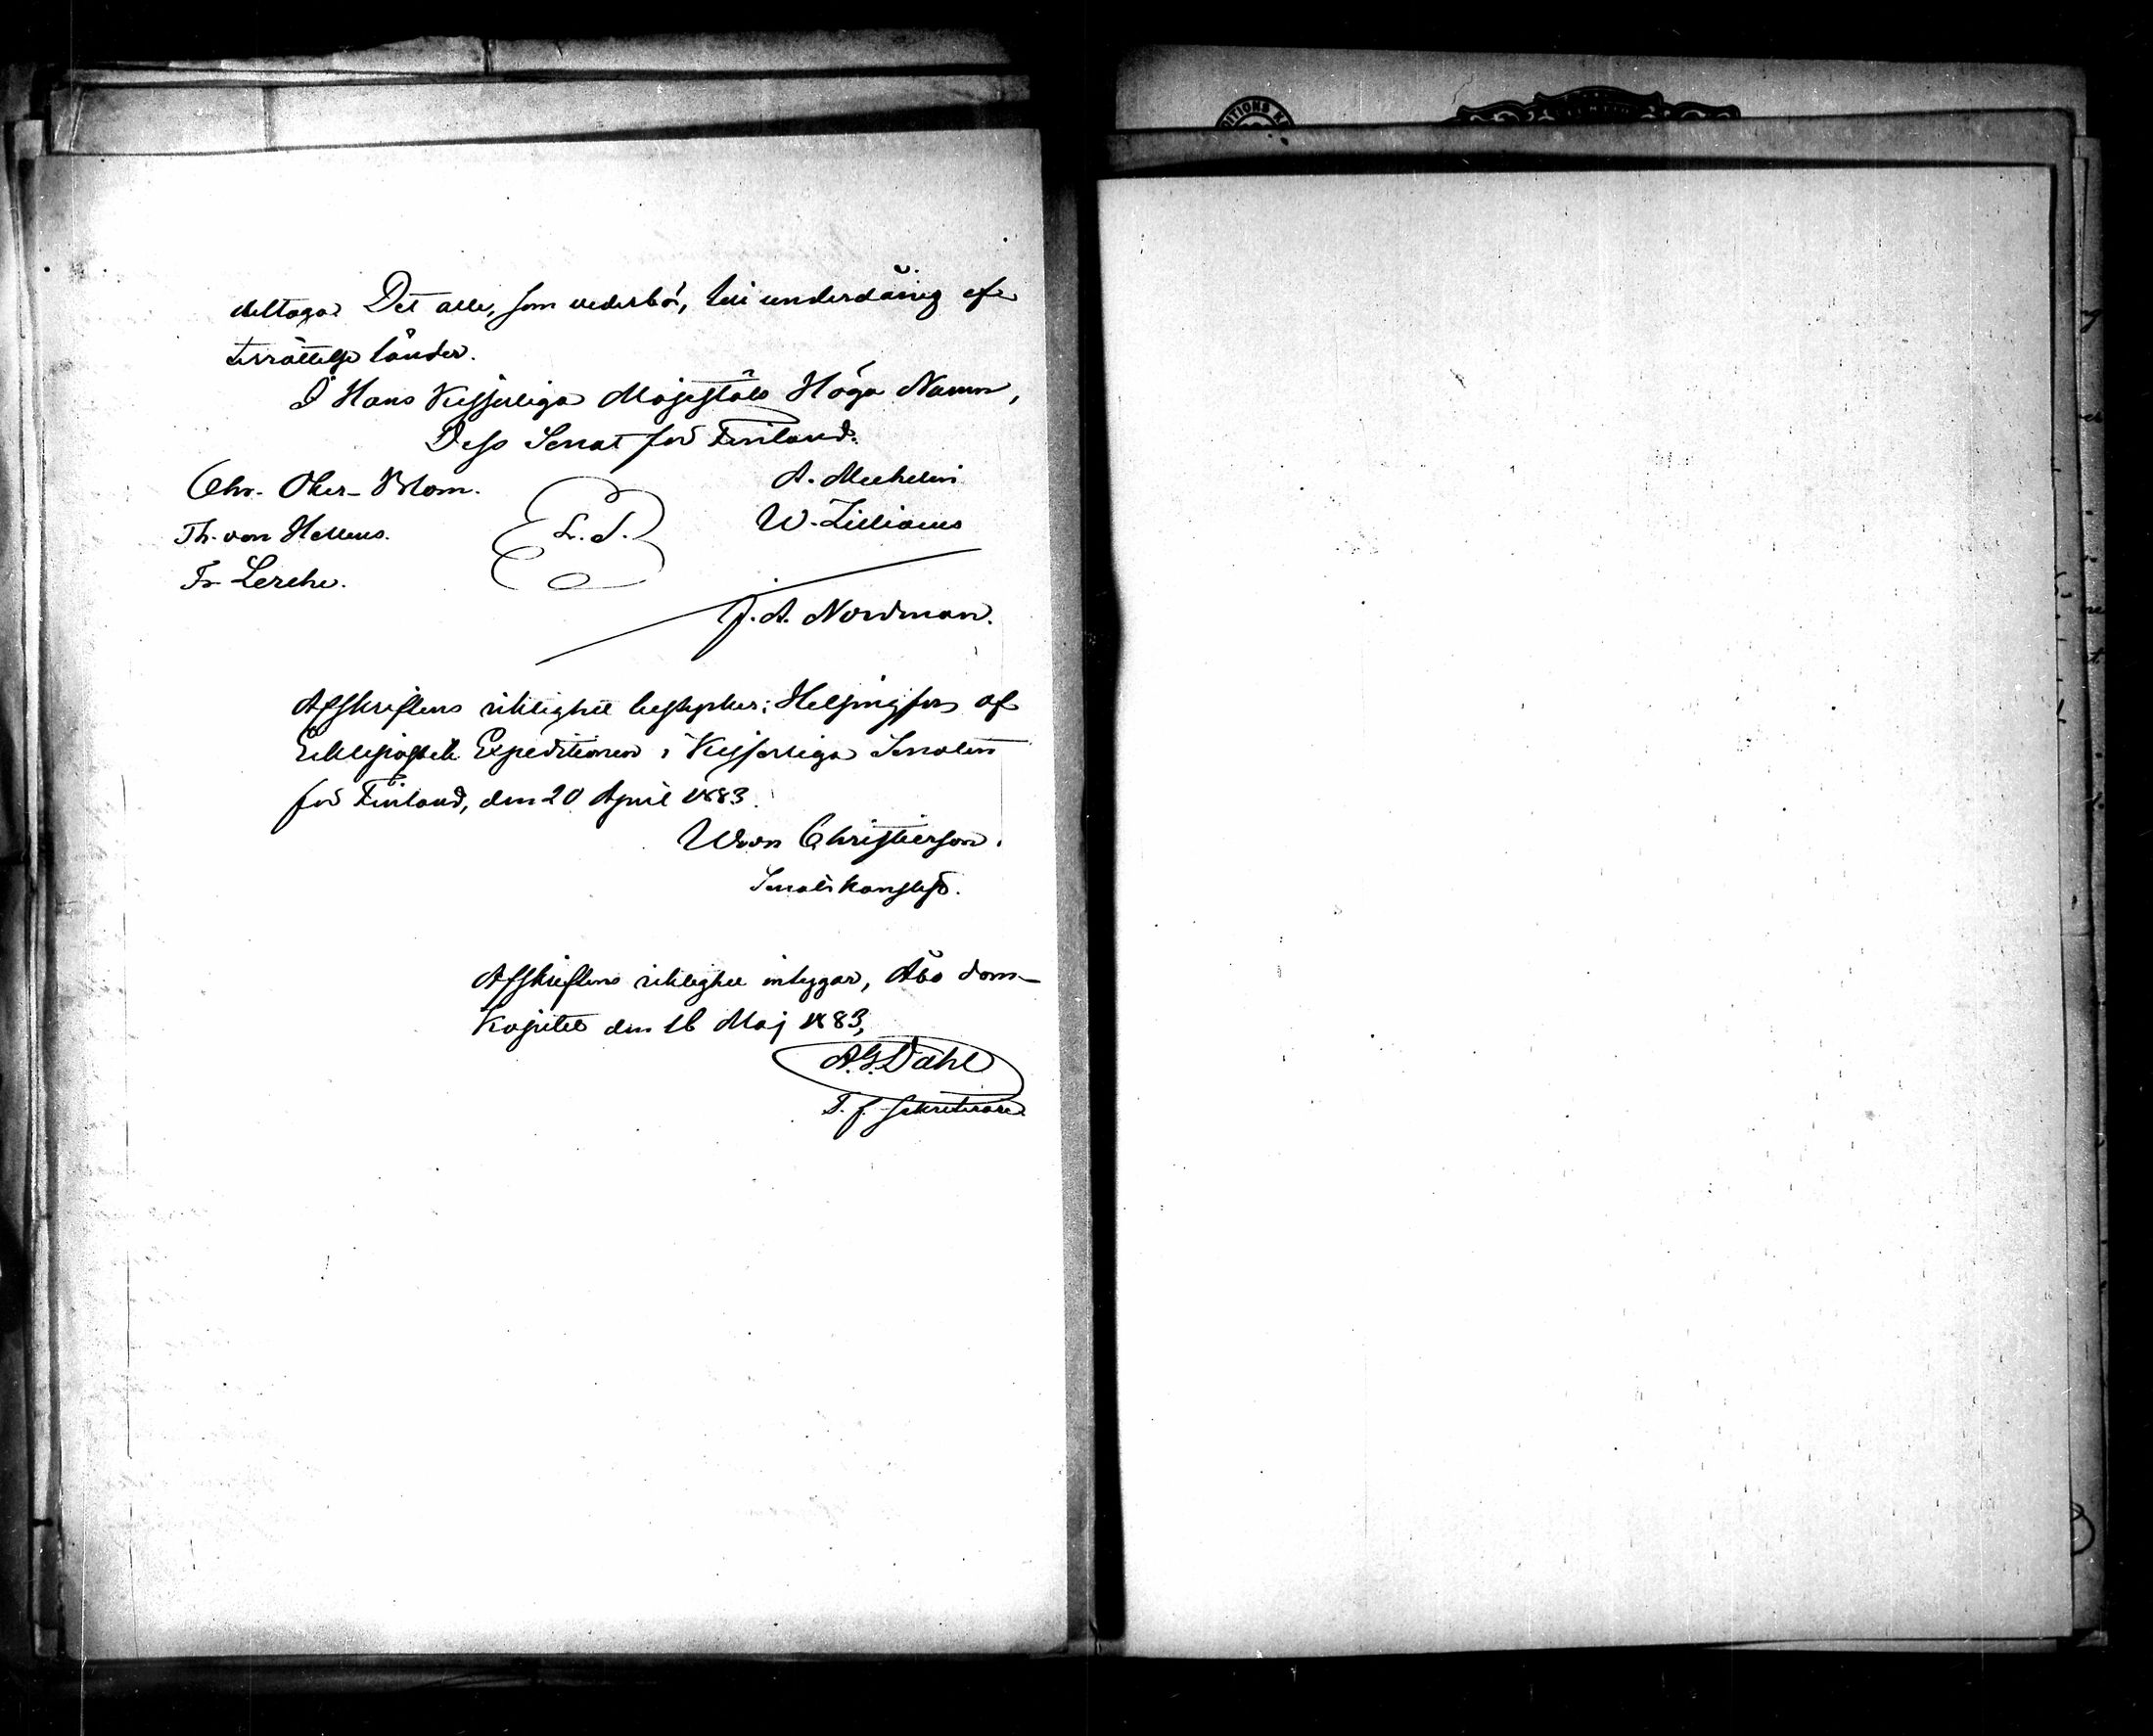 deltaga. Det alle, som vederbör, till underdånig ef-
terrättelse länder.
I Hans Kejserliga Majestäts Höga Namn,
Dess Senat för Finland.
Chr. Oker-Blom. A. Mechelin
Th. von Hellens. L.S. W. Zilliacus
Fr. Lerche.
J. A. Nordman.
Afskriftens riktighet bestyrker; Helsingfors af
Ecklesiastik Expeditionen i Kejserliga Senaten
för Finland, den 20 April 1883.
W von Christierson.
Senatskanslist.
Afskriftens riktighet intygar, Åbo dom-
kapitel den 16 Maj 1883,
A. G. Dahl
T. f. sekreterare
ITIONS K